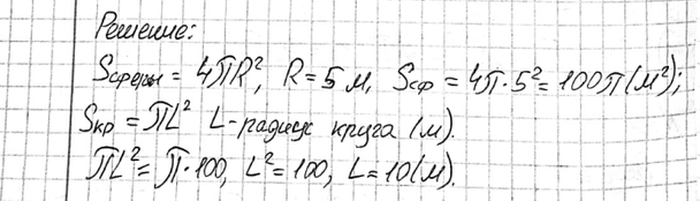 Решение:
Sсферы = 4πR², R = 5 м, Sсф = 4π·5² = 100π (м²);
Sкр = πL² L - радиус круга (м).
πL² = π·100, L² = 100, L = 10 (м).